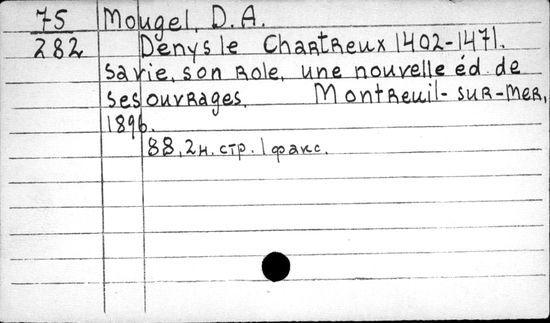 75 Mougel, D. A.
282 Denys le Chartreux 1402-1471.
sa vie, son role, une nouvelle éd. de
ses ouvrages. Montreuil-sur-mer,
1896.
88, 2 н. стр. 1 факс.